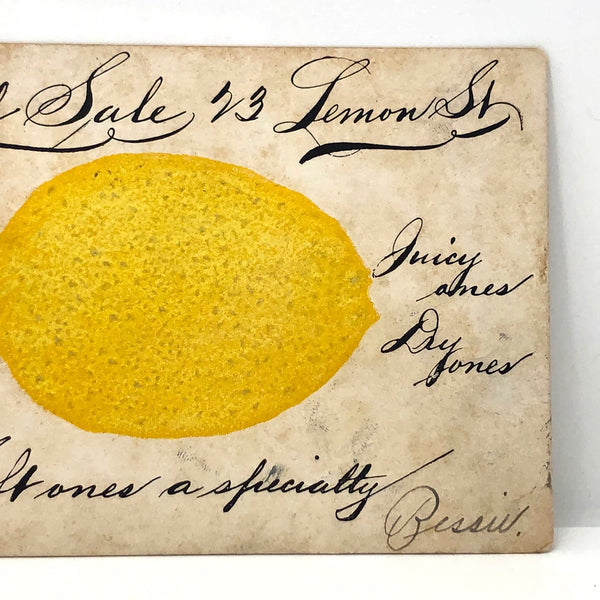 Sale 73 Lemon St
Juicy
ones
Dry
ones
ft ones a specialty
Bessie.